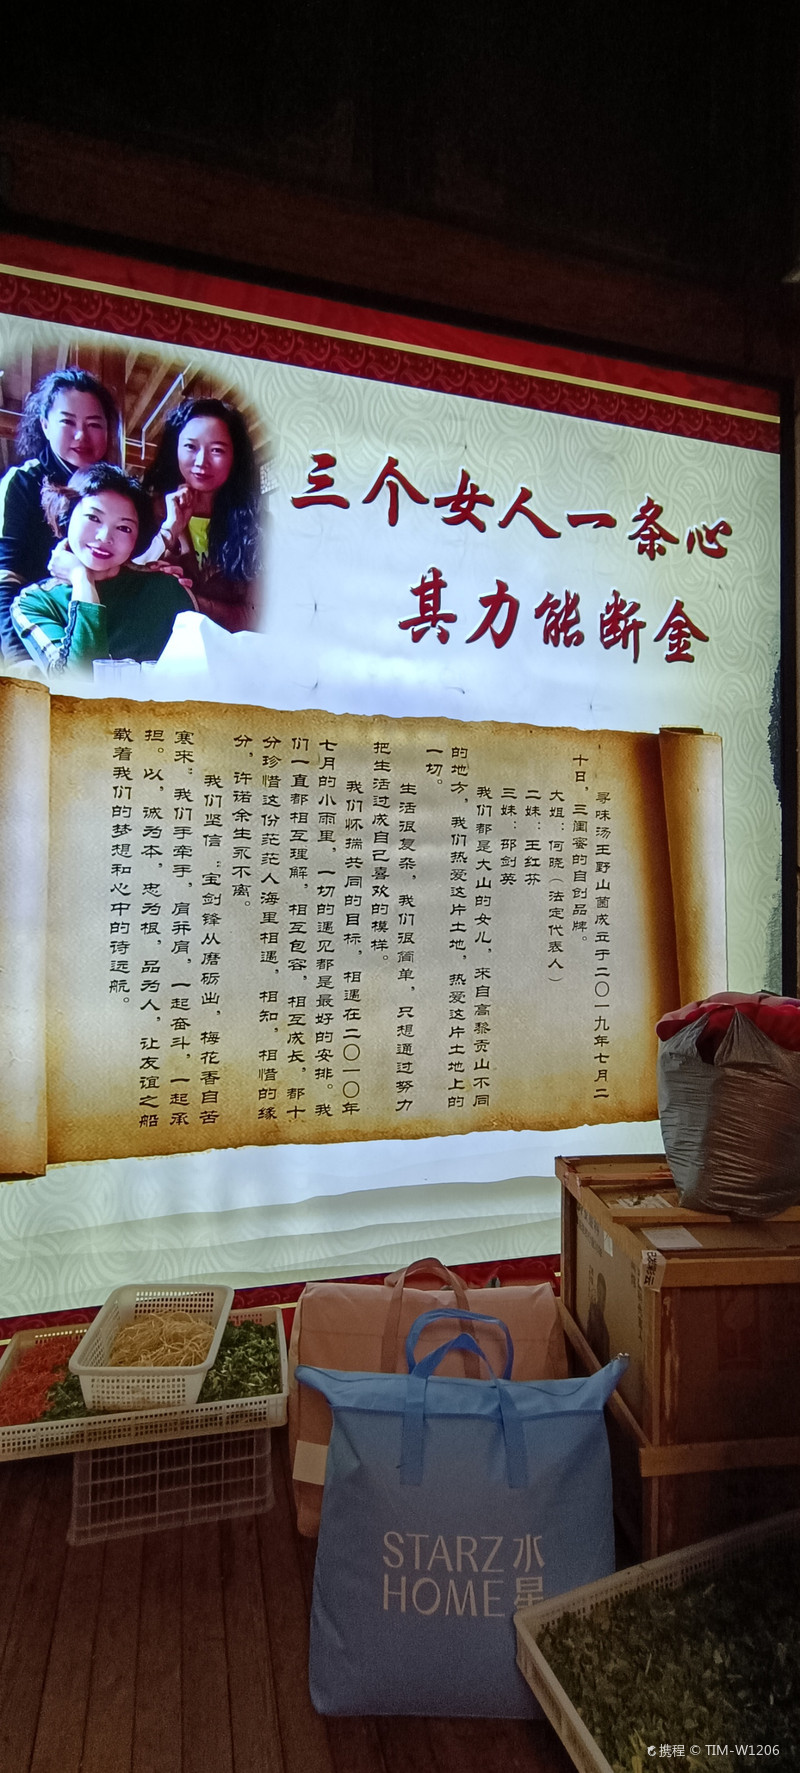 三个女人一条心
其力能断金
寻味汤王野山菌成立于二〇一九年七月二
十日，三闺蜜的自创品牌。
大姐：何晓（法定代表人）
二妹：王红芬
三妹：邵剑英
我们都是大山的女儿，来自高黎贡山不同
的地方，我们热爱这片土地，热爱这片土地上的
一切。
生活很复杂，我们很简单，只想通过努力
把生活过成自己喜欢的模样。
我们怀揣共同的目标，相遇在二〇一〇年
七月的小雨里，一切的遇见都是最好的安排。我
们一直都相互理解，相互包容，相互成长，都十
分珍惜这份茫茫人海里相遇，相知，相惜的缘
分，许诺余生永不离。
我们坚信：宝剑锋从磨砺出，梅花香自苦
寒来；我们手牵手，肩并肩，一起奋斗，一起承
担。以，诚为本，忠为根，品为人，让友谊之船
载着我们的梦想和心中的诗远航。
STARZ 水
HOME 星
携程 © TIM-W1206